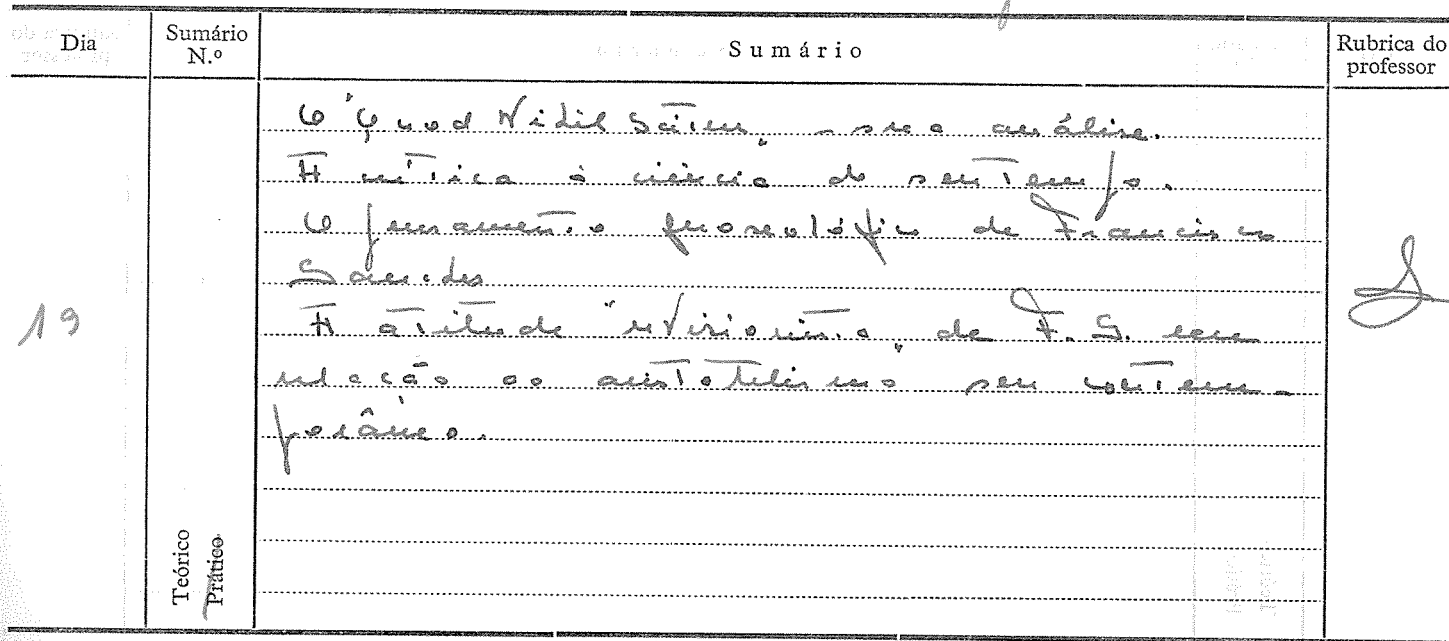 Dia
Sumário N.º
Sumário
Rubrica do professor
19
O "Quod Nihil Scitur" - sua análise.
A crítica à ciência do seu tempo.
O pensamento gnoseológico de Francisco
Sanches
A atitude "revisionista" de F. S. em
relação ao aristotelismo seu contem-
porâneo.
Teórico
Prático